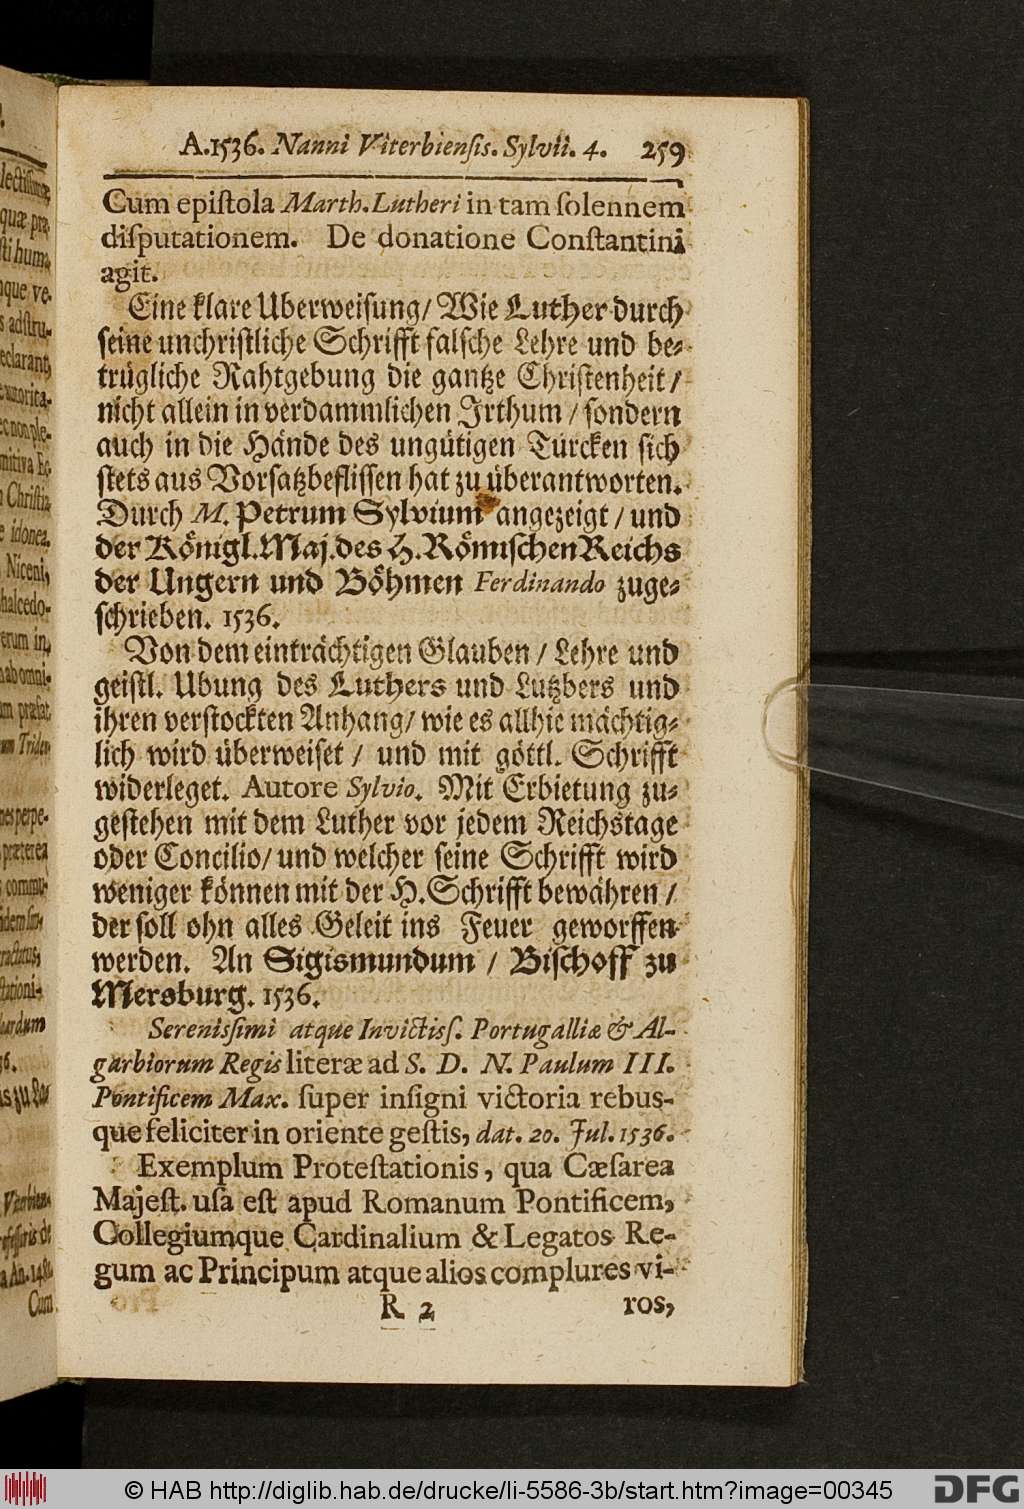 A.1536. Nanni Viterbiensis. Sylvii. 4. 259
Cum epistola Marth. Lutheri in tam solennem
disputationem. De donatione Constantini
agit.
Eine klare Uberweisung/ Wie Luther durch
seine unchristliche Schrifft falsche Lehre und be-
trügliche Rahtgebung die gantze Christenheit/
nicht allein in verdammlichen Irthum/ sondern
auch in die Hände des ungütigen Türcken sich
stets aus Vorsatz beflissen hat zu überantworten.
Durch M. Petrum Sylvium angezeigt/ und
der Königl. Maj. des H. Römischen Reichs
der Ungern und Böhmen Ferdinando zuge-
schrieben. 1536.
Von dem einträchtigen Glauben/ Lehre und
geistl. Ubung des Luthers und Lutzbers und
ihren verstockten Anhang/ wie es allhie mächtig-
lich wird überweiset/ und mit göttl. Schrifft
widerleget. Autore Sylvio. Mit Erbietung zu-
gestehen mit dem Luther vor jedem Reichstage
oder Concilio/ und welcher seine Schrifft wird
weniger können mit der H. Schrifft bewähren/
der soll ohn alles Geleit ins Feuer geworffen
werden. An Sigismundum/ Bischoff zu
Mersburg. 1536.
Serenissimi atque Invictiss. Portugalliæ & Al-
garbiorum Regis literæ ad S. D. N. Paulum III.
Pontificem Max. super insigni victoria rebus-
que feliciter in oriente gestis, dat. 20. Jul. 1536.
Exemplum Protestationis, qua Cæsarea
Majest. usa est apud Romanum Pontificem,
Collegiumque Cardinalium & Legatos Re-
gum ac Principum atque alios complures vi-
R 2 ros,
© HAB http://diglib.hab.de/drucke/li-5586-3b/start.htm?image=00345
DFG